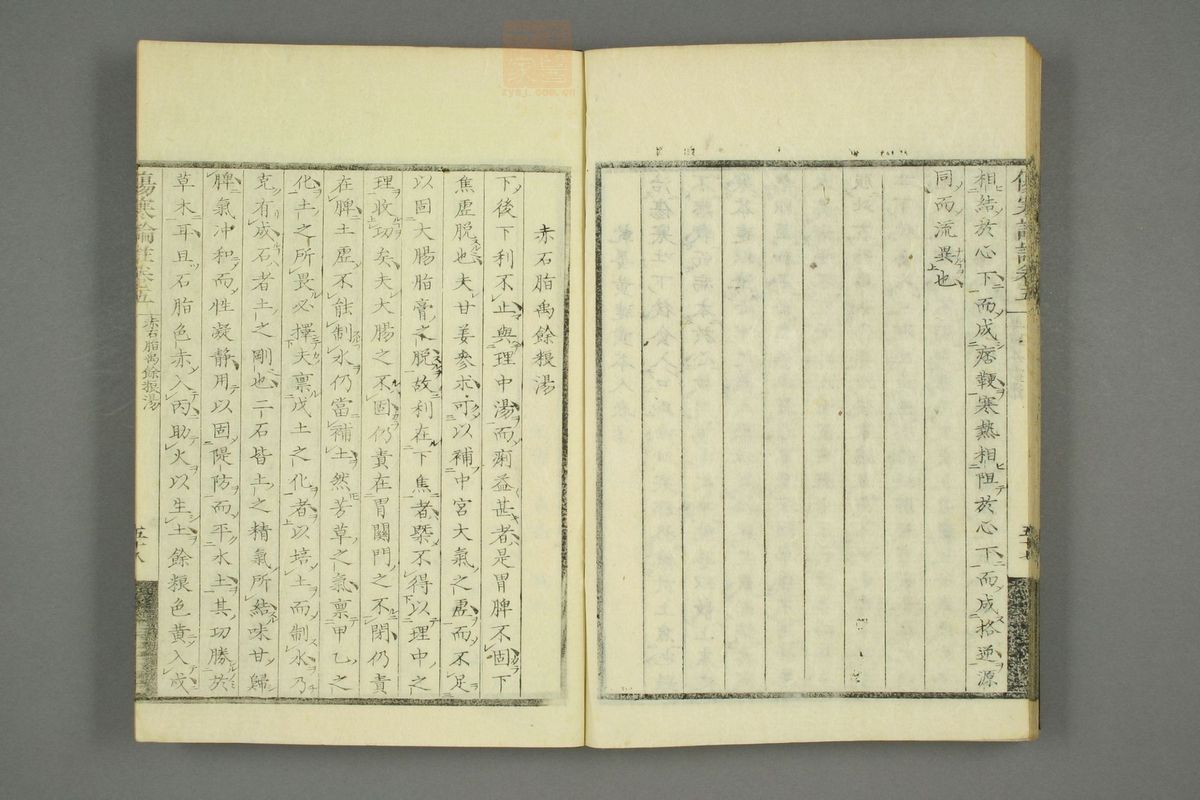 相結於心下而成痞鞕寒熱相阻於心下而成格逆源
同而流異也
五十七
赤石脂禹餘粮湯
下後下利不止與理中湯而痢益甚者是胃脾不固下
焦虛脫也夫甘姜參朮可以補中宮大氣之虛而不足
以固大腸脂膏之脫故利在下焦者槩不得以理中之
理收功矣夫大腸之不固仍責在胃關門之不閉仍責
在脾土虛不能制水仍當補土然芳草之氣禀甲乙之
化土之所畏必擇夫禀戊土之化者以培土而制水乃
克有成石者土之剛也二石皆土之精氣所結味甘歸
脾氣冲和而性凝静用以固隄防而平水土其功勝於
草木耳且石脂色赤入丙助火以生土餘粮色黄入戊
傷寒論註卷五
赤石脂禹餘粮湯
五十八
zysj.com.cn